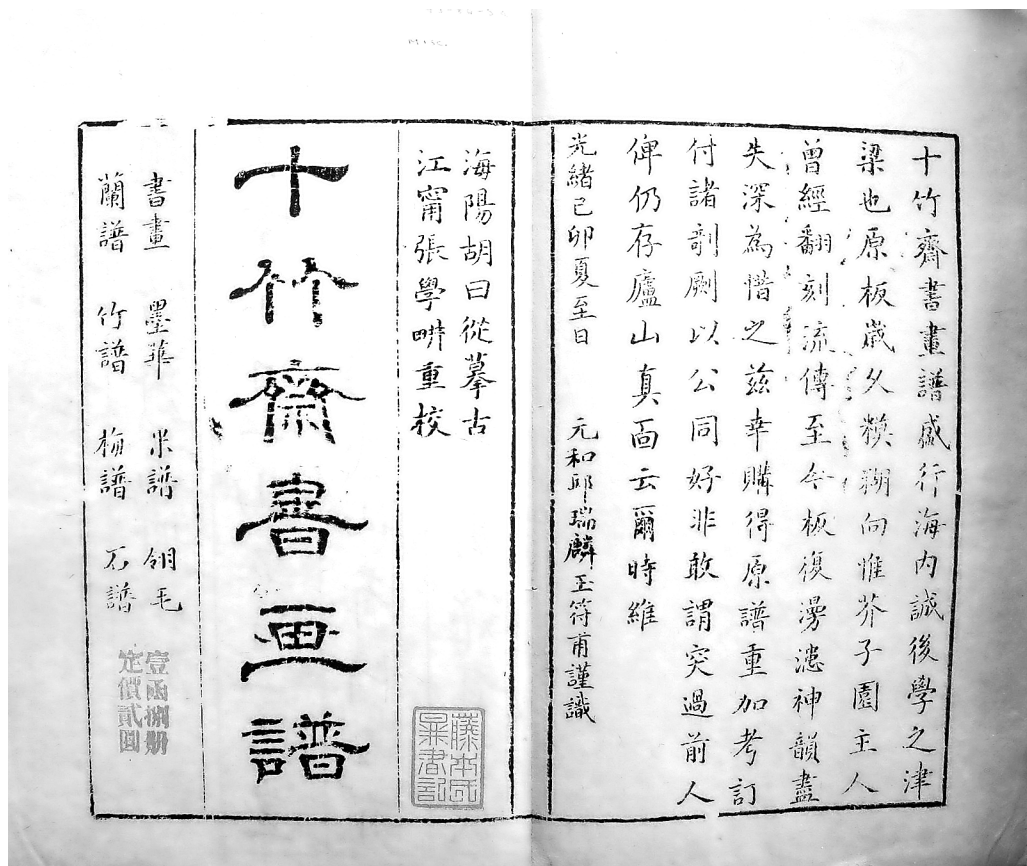 十竹齋書畫譜盛行海内誠後學之津
梁也原板歲久糢糊向惟芥子園主人
曾經翻刻流傳至今板復漫漶神韻盡
失深為惜之兹幸購得原譜重加考訂
付諸剞劂以公同好非敢謂突過前人
俾仍存廬山真面云爾時維
光緒己卯夏至日 元和邱瑞麟玉符甫謹識
海陽胡曰從摹古
江甯張學畊重校
十竹齋書畫譜
書畫 墨華 果譜 翎毛
蘭譜 竹譜 梅譜 石譜
壹函捌册
定價貳圓